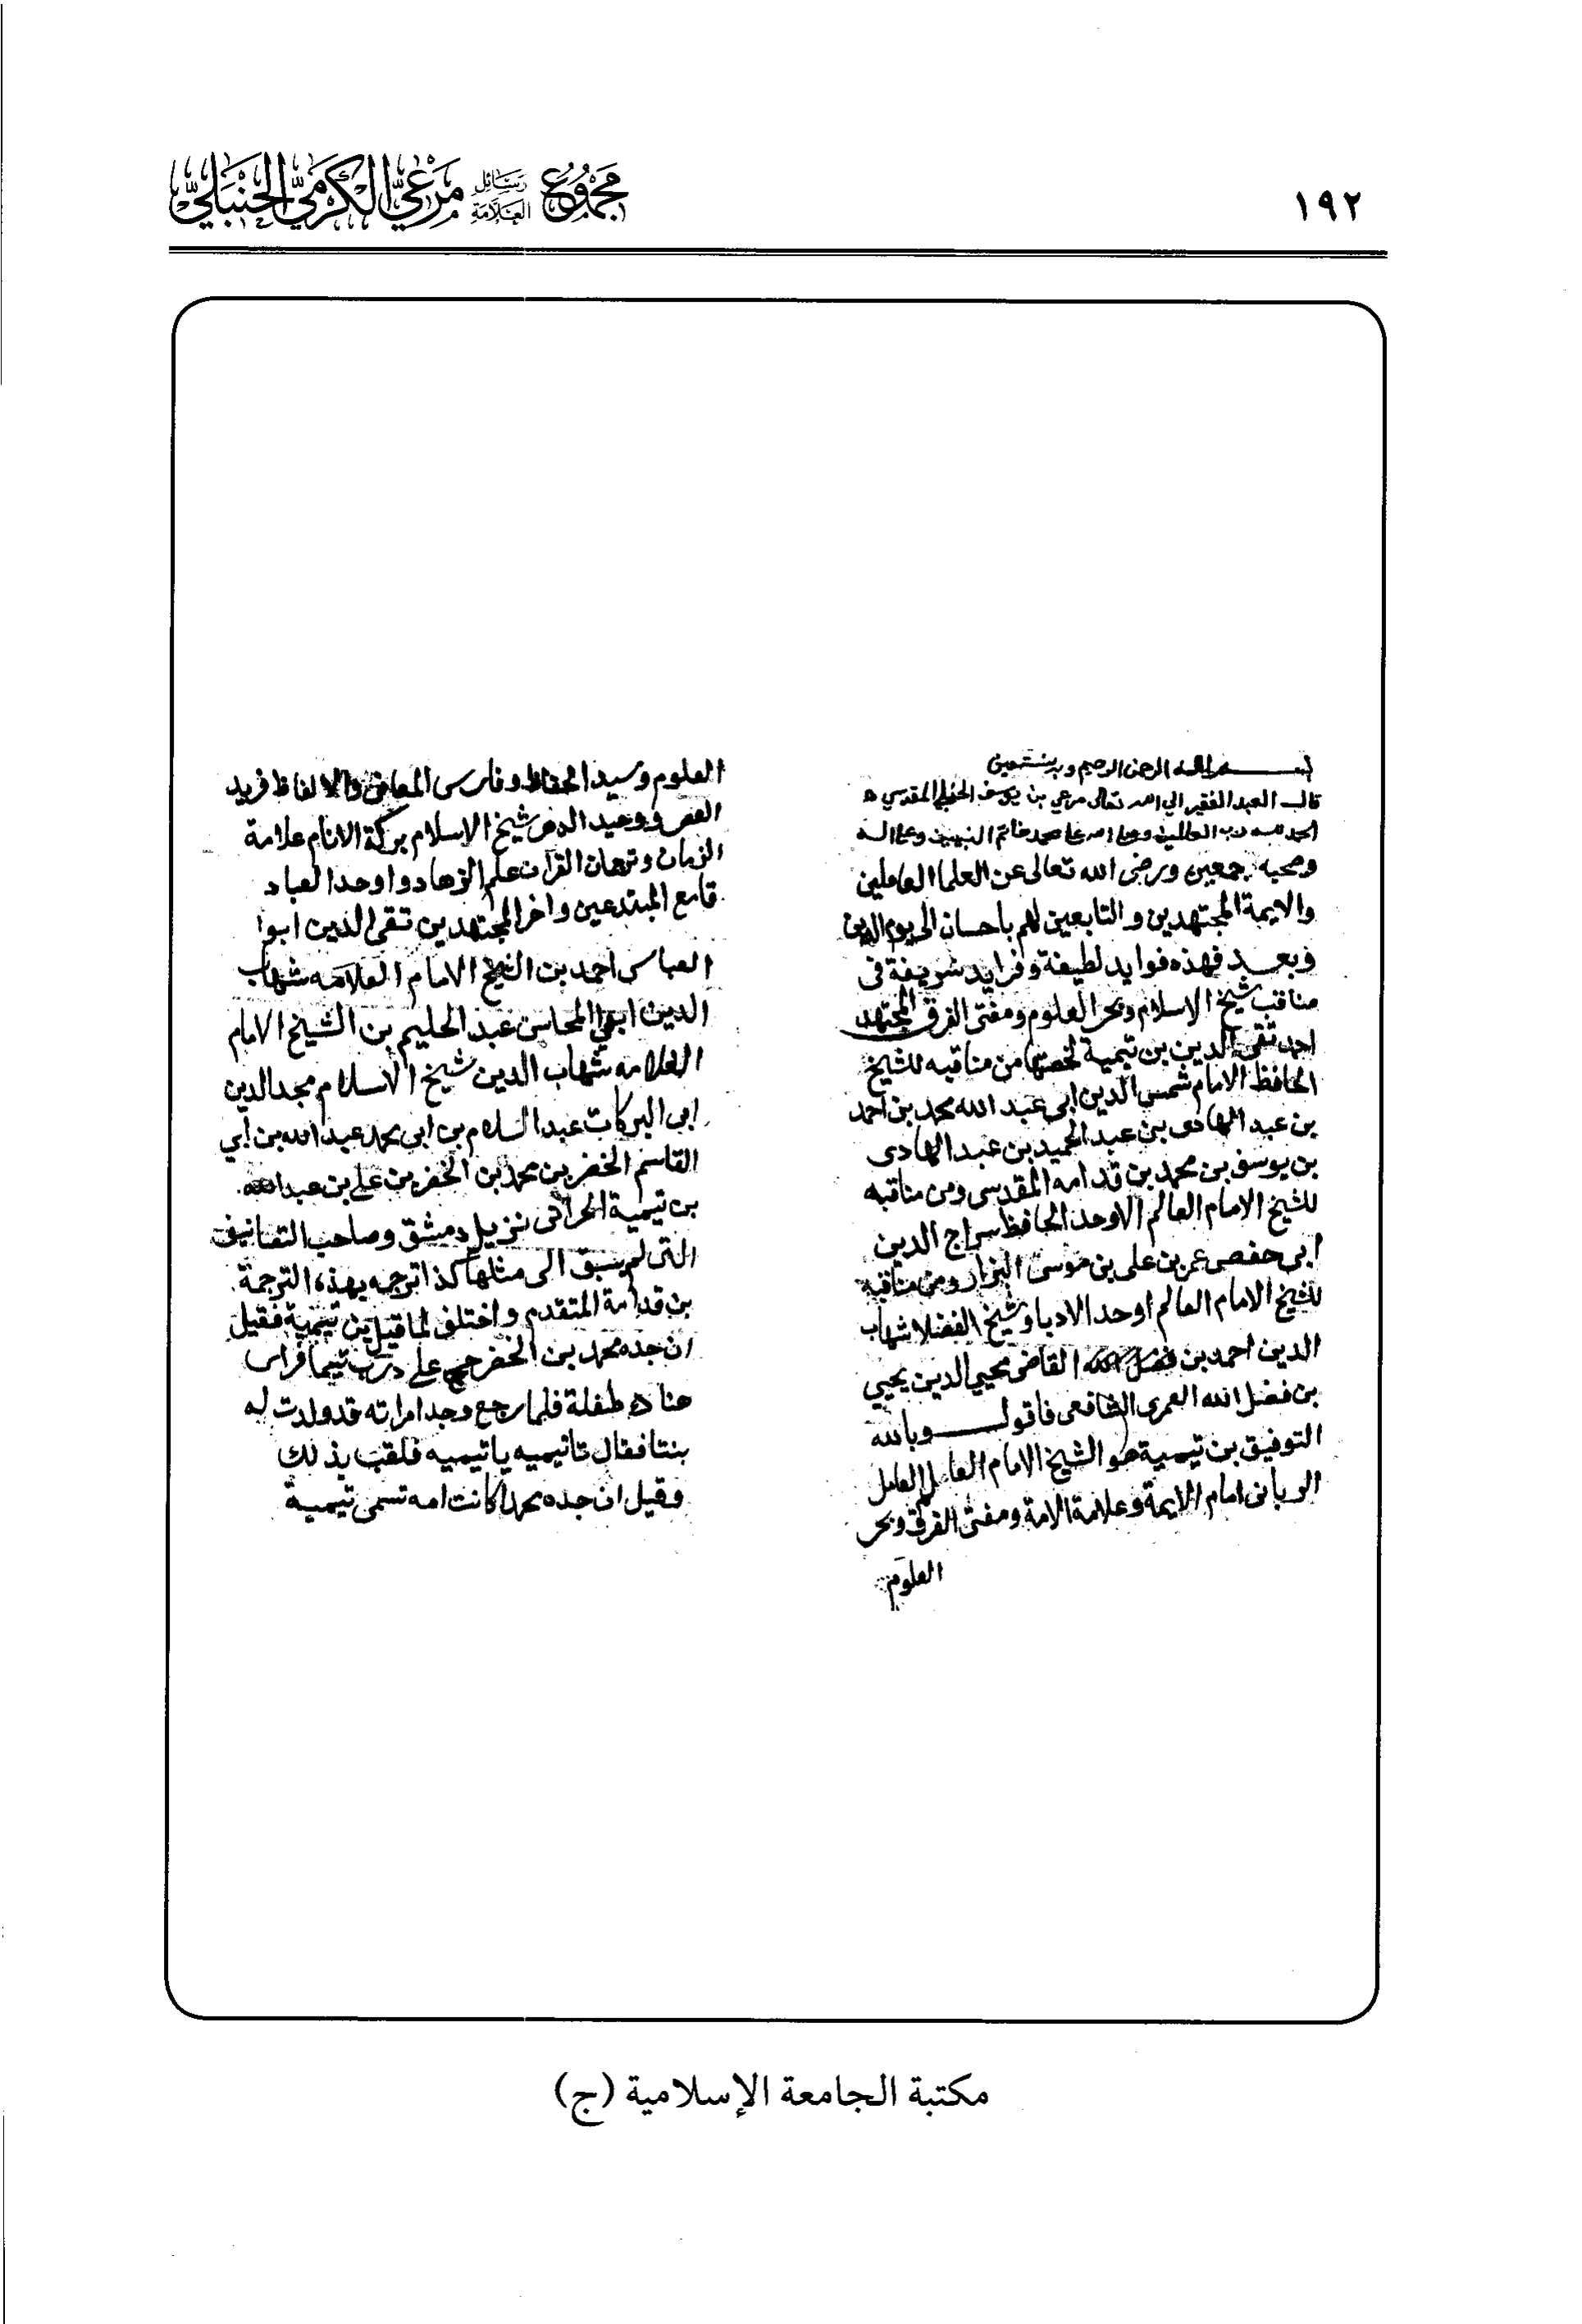 ١٩٢
مجموع رسائل العلامة مرعي الكرمي الحنبلي
بسم الله الرحمن الرحيم وبه نستعين
قال العبد الفقير الي الله تعالى مرعي بن يوسف الحنبلي المقدسي
الحمد لله رب العالمين وصلى الله على محمد خاتم النبيين وعلى اله
وصحبه اجمعين ورضى الله تعالى عن العلما العاملين
والايمة المجتهدين والتابعين لهم باحسان الى يوم الدين
وبعد فهذه فوايد لطيفة وفرايد شريفة في
مناقب شيخ الاسلام وبحر العلوم ومفتى الفرق المجتهد
احمد تقي الدين بن تيمية لخصتها من مناقبه للشيخ
الحافظ الامام شمس الدين ابى عبد الله محمد بن احمد
بن عبد الهادى بن عبد الحميد بن عبد الهادى
بن يوسف بن محمد بن قدامه المقدسى ومن مناقبه
للشيخ الامام العالم الاوحد الحافظ سراج الدين
ابى حفص عمر بن على بن موسى البزار ومن مناقبه
للشيخ الامام العالم اوحد الادبا وشيخ الفضلا شهاب
الدين احمد بن فضل الله القاضى محيي الدين يحيي
بن فضل الله العمرى الشافعى فاقول وبالله
التوفيق بن تيمية هو الشيخ الامام العالم العامل
الربانى امام الايمة وعلامة الامة ومفتى الفرق وبحر
العلوم
العلوم وسيد الحفاظ وفارس المعانى والالفاظ فريد
العصر ووحيد الدهر شيخ الاسلام بركة الانام علامة
الزمان وترجمان القرآن علم الزهاد واوحد العباد
قامع المبتدعين واخر المجتهدين تقى الدين ابوا
العباس احمد بن الشيخ الامام العلامه شهاب
الدين ابي المحاسن عبد الحليم بن الشيخ الامام
العلامه شهاب الدين شيخ الاسلام مجد الدين
ابى البركات عبد السلام بن ابى محمد عبد الله بن أبي
القاسم الخضر بن محمد بن الخضر بن علي بن عبد الله
بن تيمية الحرانى نزيل دمشق وصاحب التصانيف
التى لم يسبق الى مثلها كذا ترجمه بهذه الترجمة
بن قدامة المتقدم واختلف لما قيل بن تيمية فقيل
ان جده محمد بن الخضر حج على درب تيما فراى
هناك طفلة فلما رجع وجد امراته قد ولدت له
بنتا فقال يا تيميه يا تيميه فلقب بذلك
وقيل ان جده محمدا كانت امه تسمى تيمية
مكتبة الجامعة الإسلامية (ج)